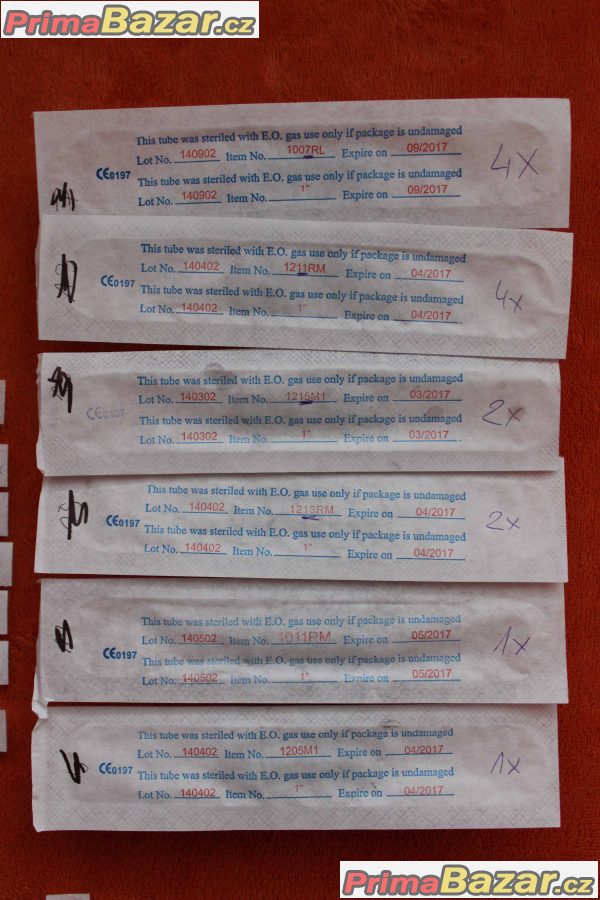 PrimaBazar.cz
This tube was steriled with E.O. gas use only if package is undamaged
Lot No. 140902 Item No. 1007RL Expire on 09/2017
CE0197
This tube was steriled with E.O. gas use only if package is undamaged
Lot No. 140902 Item No. 1" Expire on 09/2017
4x
This tube was steriled with E.O. gas use only if package is undamaged
Lot No. 140402 Item No. 1211RM Expire on 04/2017
CE0197
This tube was steriled with E.O. gas use only if package is undamaged
Lot No. 140402 Item No. 1" Expire on 04/2017
4x
This tube was steriled with E.O. gas use only if package is undamaged
Lot No. 140302 Item No. 1215M1 Expire on 03/2017
CE0197
This tube was steriled with E.O. gas use only if package is undamaged
Lot No. 140302 Item No. 1" Expire on 03/2017
2x
This tube was steriled with E.O. gas use only if package is undamaged
Lot No. 140402 Item No. 1213RM Expire on 04/2017
CE0197
This tube was steriled with E.O. gas use only if package is undamaged
Lot No. 140402 Item No. 1" Expire on 04/2017
2x
This tube was steriled with E.O. gas use only if package is undamaged
Lot No. 140502 Item No. 1011RM Expire on 05/2017
CE0197
This tube was steriled with E.O. gas use only if package is undamaged
Lot No. 140502 Item No. 1" Expire on 05/2017
1x
This tube was steriled with E.O. gas use only if package is undamaged
Lot No. 140402 Item No. 1205M1 Expire on 04/2017
CE0197
This tube was steriled with E.O. gas use only if package is undamaged
Lot No. 140402 Item No. 1" Expire on 04/2017
1x
PrimaBazar.cz